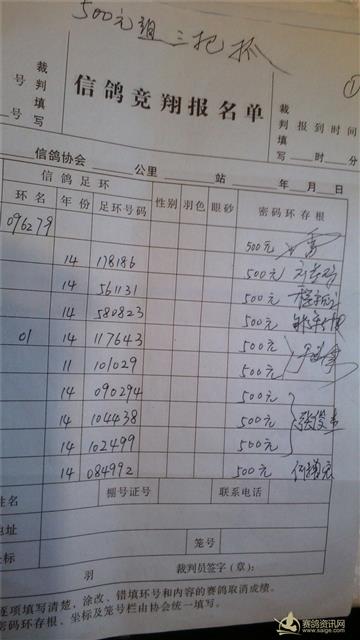 500元组三把抓
①
裁判填写
号
号
信鸽竞翔报名单
裁判填写
报到时间
时 分
信鸽协会 公里 站 年 月 日
信鸽足环 性别 羽色 眼砂 密码环存根
环名 年份 足环号码
096279 500元
14 178186 500元
14 561131 500元
14 580823 500元
01 14 117643 500元
11 101029 500元
14 090294 500元
14 104438 500元 张俊
14 102499 500元
14 084992 500元
姓名 棚号证号 联系电话
地址
坐标 笼号
羽 裁判员签字(章):
逐项填写清楚,涂改、错填环号和内容的赛鸽取消成绩。
密码环存根、坐标及笼号栏由协会统一填写。
赛鸽资讯网
www.saige.com